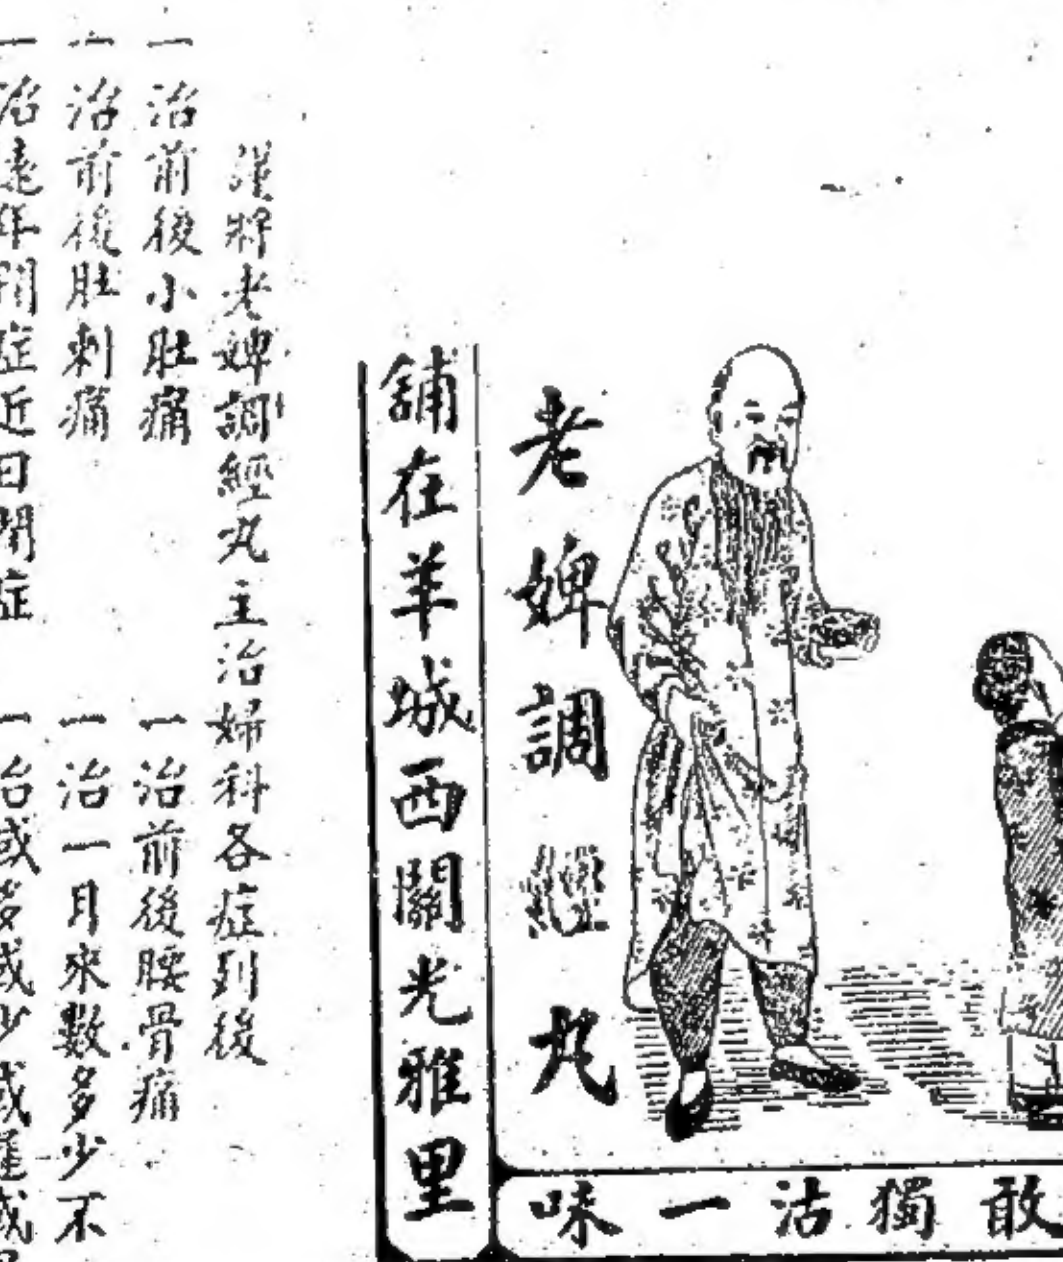 敢獨沽一味
老婢調經丸
舖在羊城西關光雅里
謹將老婢調經丸主治婦科各症列後
一治前後小肚痛
一治前後腰骨痛
一治前後肚刺痛
一治一月來數多少不
一治遠年閉症近日閉症
一治或多或少或